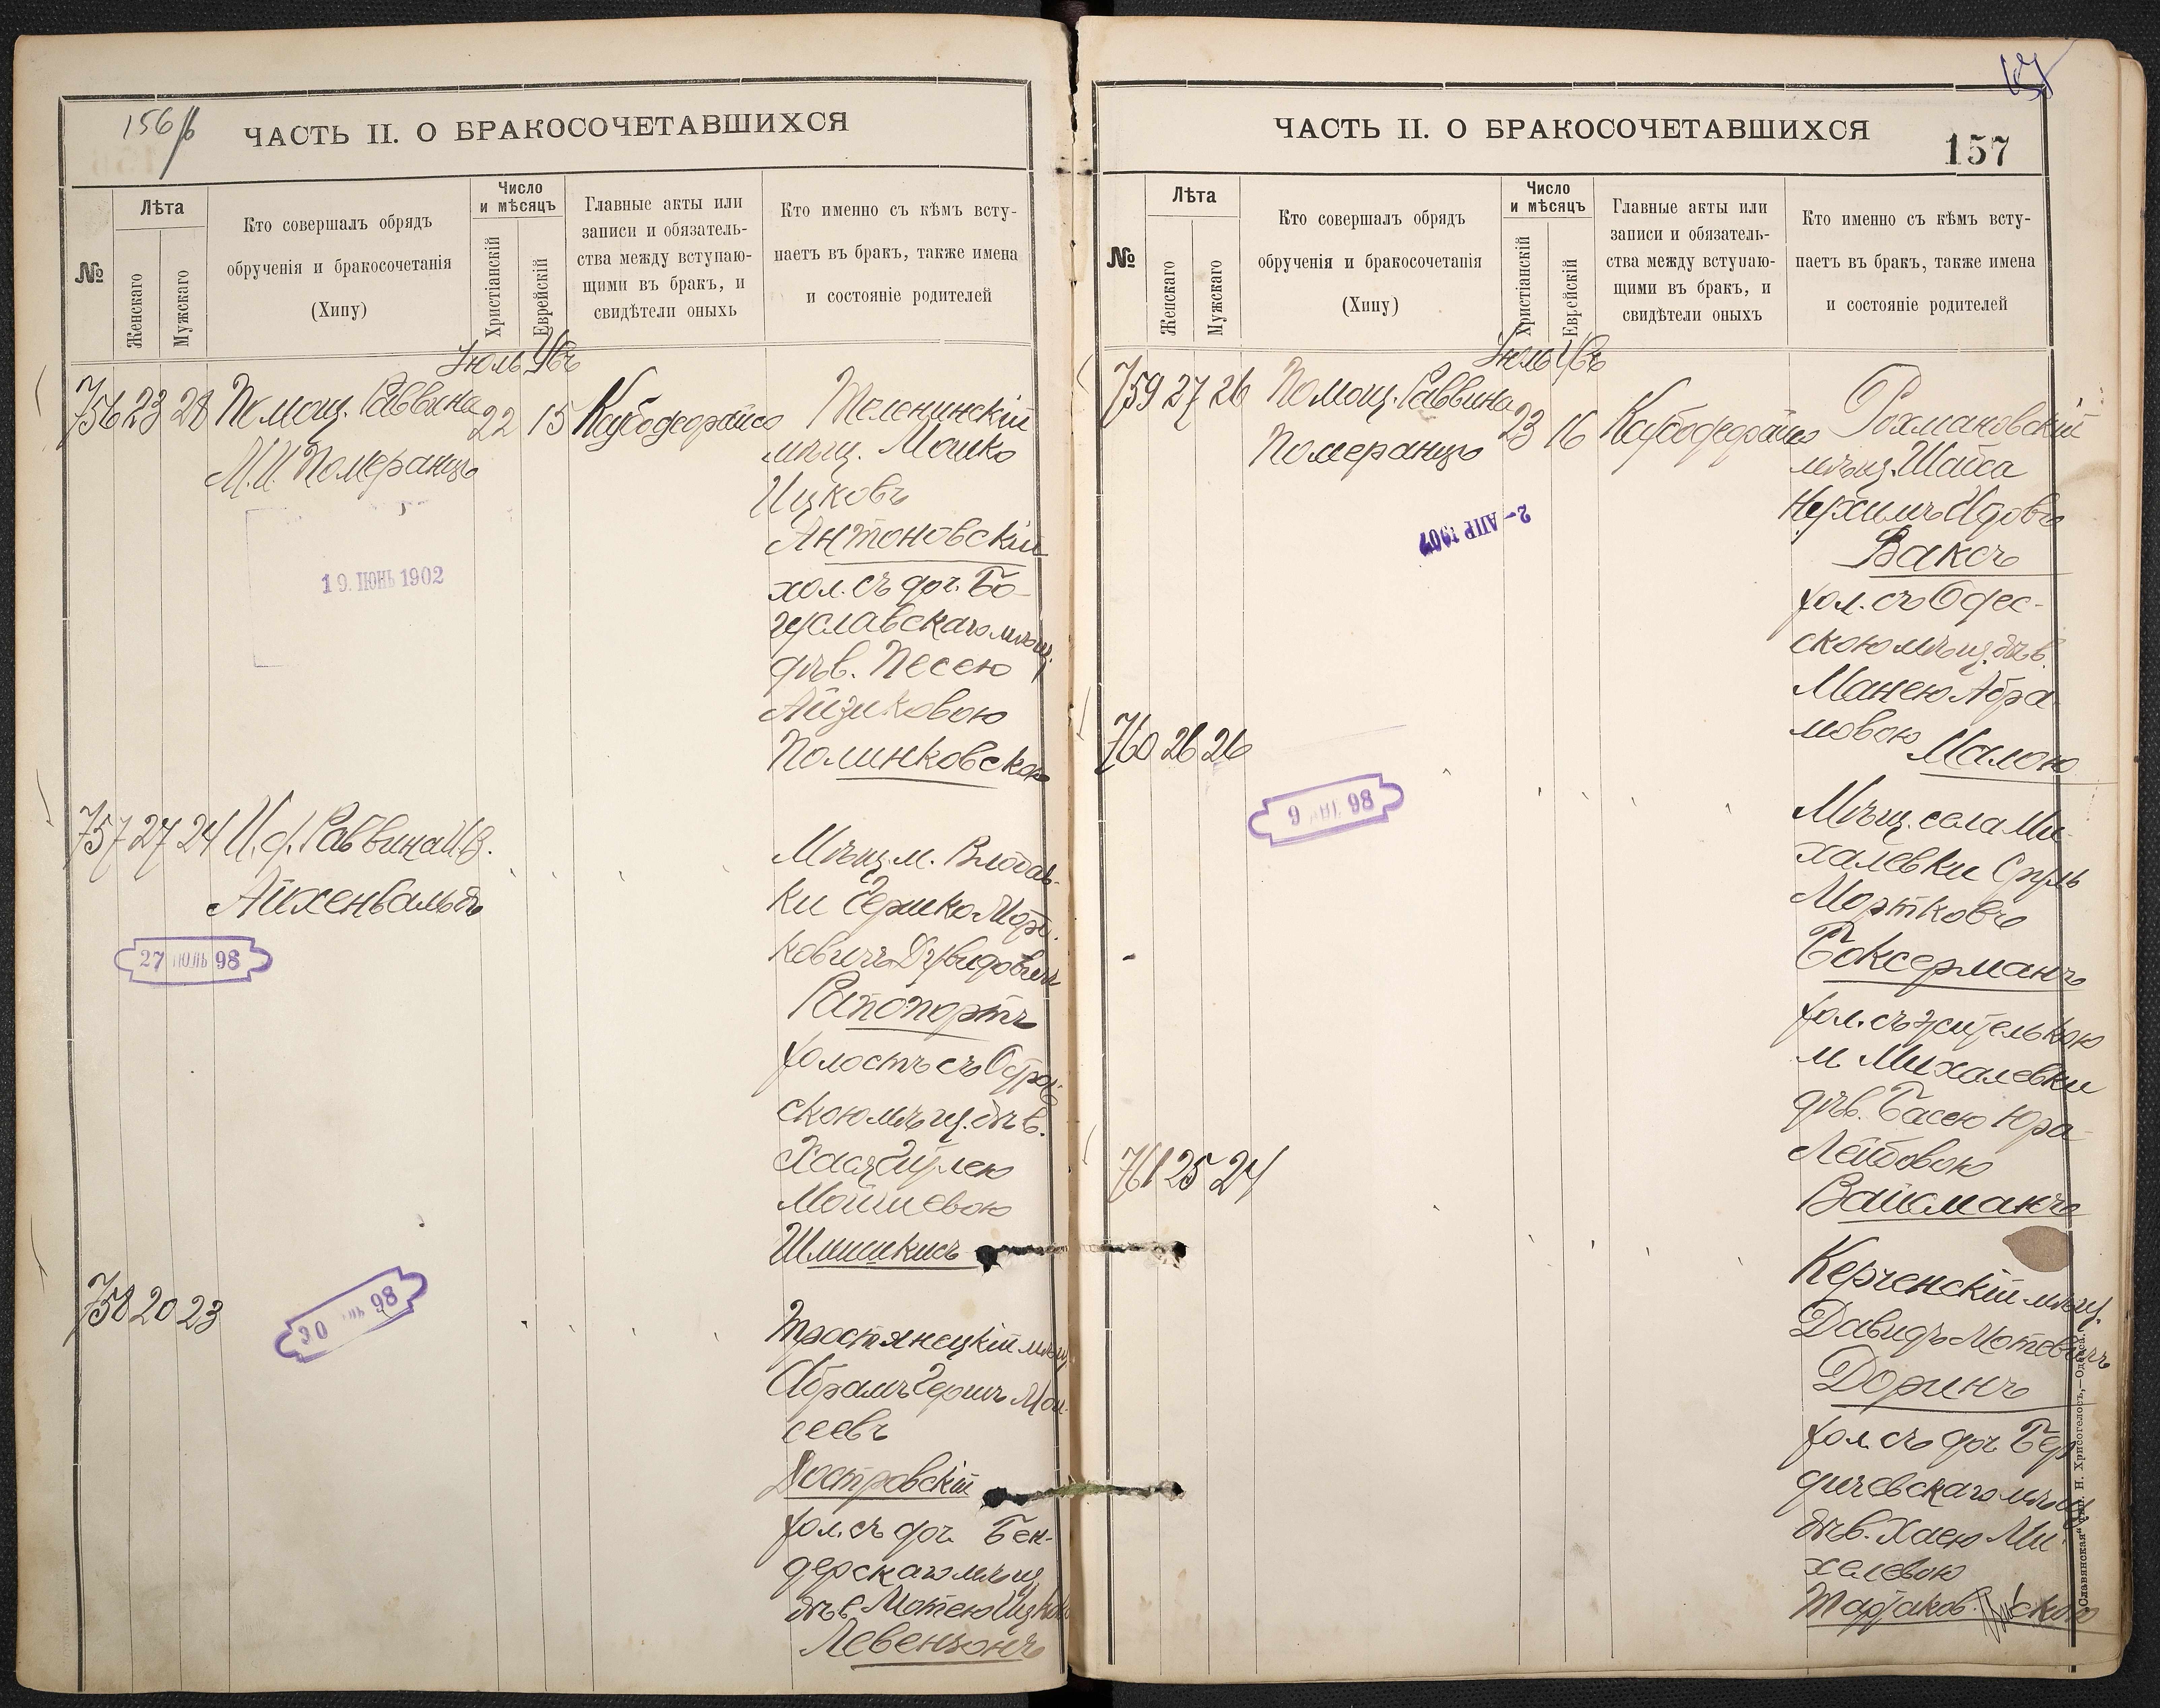 156/б
ЧАСТЬ II. О БРАКОСОЧЕТАВШИХСЯ
№
Лѣта
Женскаго
Мужскаго
Кто совершалъ обрядъ
обрученія и бракосочетанія
(Хипу)
Число
и мѣсяцъ
Христіанскій
Еврейскій
Главные акты или
записи и обязатель-
ства между вступаю-
щими въ бракъ, и
свидѣтели оныхъ
Кто именно съ кѣмъ всту-
паетъ въ бракъ, также имена
и состояніе родителей
Іюль
756 23 28 Помощ. Раввина 22 15
М. И. Померанцъ
мѣщ. Мошко
Ицковъ
Антоновскій
хол. съ доч. Бо-
гуславскаго мѣщ.
дѣв. Песею
Айзиковою
Полинковскою
19. ІЮНЬ 1902
757 27 24 И. д. Раввина
Айхенвальдъ
27 ІЮЛЬ 98
Мѣщ. м. Влодав-
ки Гершко Морд-
ковичъ Дувидовичъ
Рапопортъ
холостъ съ
скою мѣщ. дѣв.
Мошковою
758 20 23
30 98
Тростянецкій мѣщ.
Абрамъ Гершъ Мои-
сеевъ
Востровскій
хол. съ доч. Бен-
дерскаго мѣщ.
дѣв. Мотею Ицков
Левензонъ
ЧАСТЬ II. О БРАКОСОЧЕТАВШИХСЯ
157
№
Лѣта
Женскаго
Мужскаго
Кто совершалъ обрядъ
обрученія и бракосочетанія
(Хипу)
Число
и мѣсяцъ
Христіанскій
Еврейскій
Главные акты или
записи и обязатель-
ства между вступаю-
щими въ бракъ, и
свидѣтели оныхъ
Кто именно съ кѣмъ всту-
паетъ въ бракъ, также имена
и состояніе родителей
Іюль
759 27 26 Помощ. Раввина 23 16
Померанцъ
2- АПР 1907
Рохмановскій
мѣщ. Шая
Нухимъ Идовъ
Ваксъ
хол. съ Одес-
скою мѣщ. дѣв.
Манею Абра-
мовою Малою
760 26 26
6 98
Мѣщ. села Ми-
халевки Сруль
Мортковъ
Боксерманъ
хол. съ жителькою
м. Михалевки
дѣв. Басею Юра-
Лейбовою
Вайсманъ
761 25 24
Керченскій мѣщ.
Давидъ Мотевичъ
Доринъ
хол. съ доч. Бер-
дичевскаго мѣщ.
дѣв. Хаею Ми-
хелевою
Тартаковскою
„Славянская“ тип. Н. Хрисогелосъ,—Одесса.